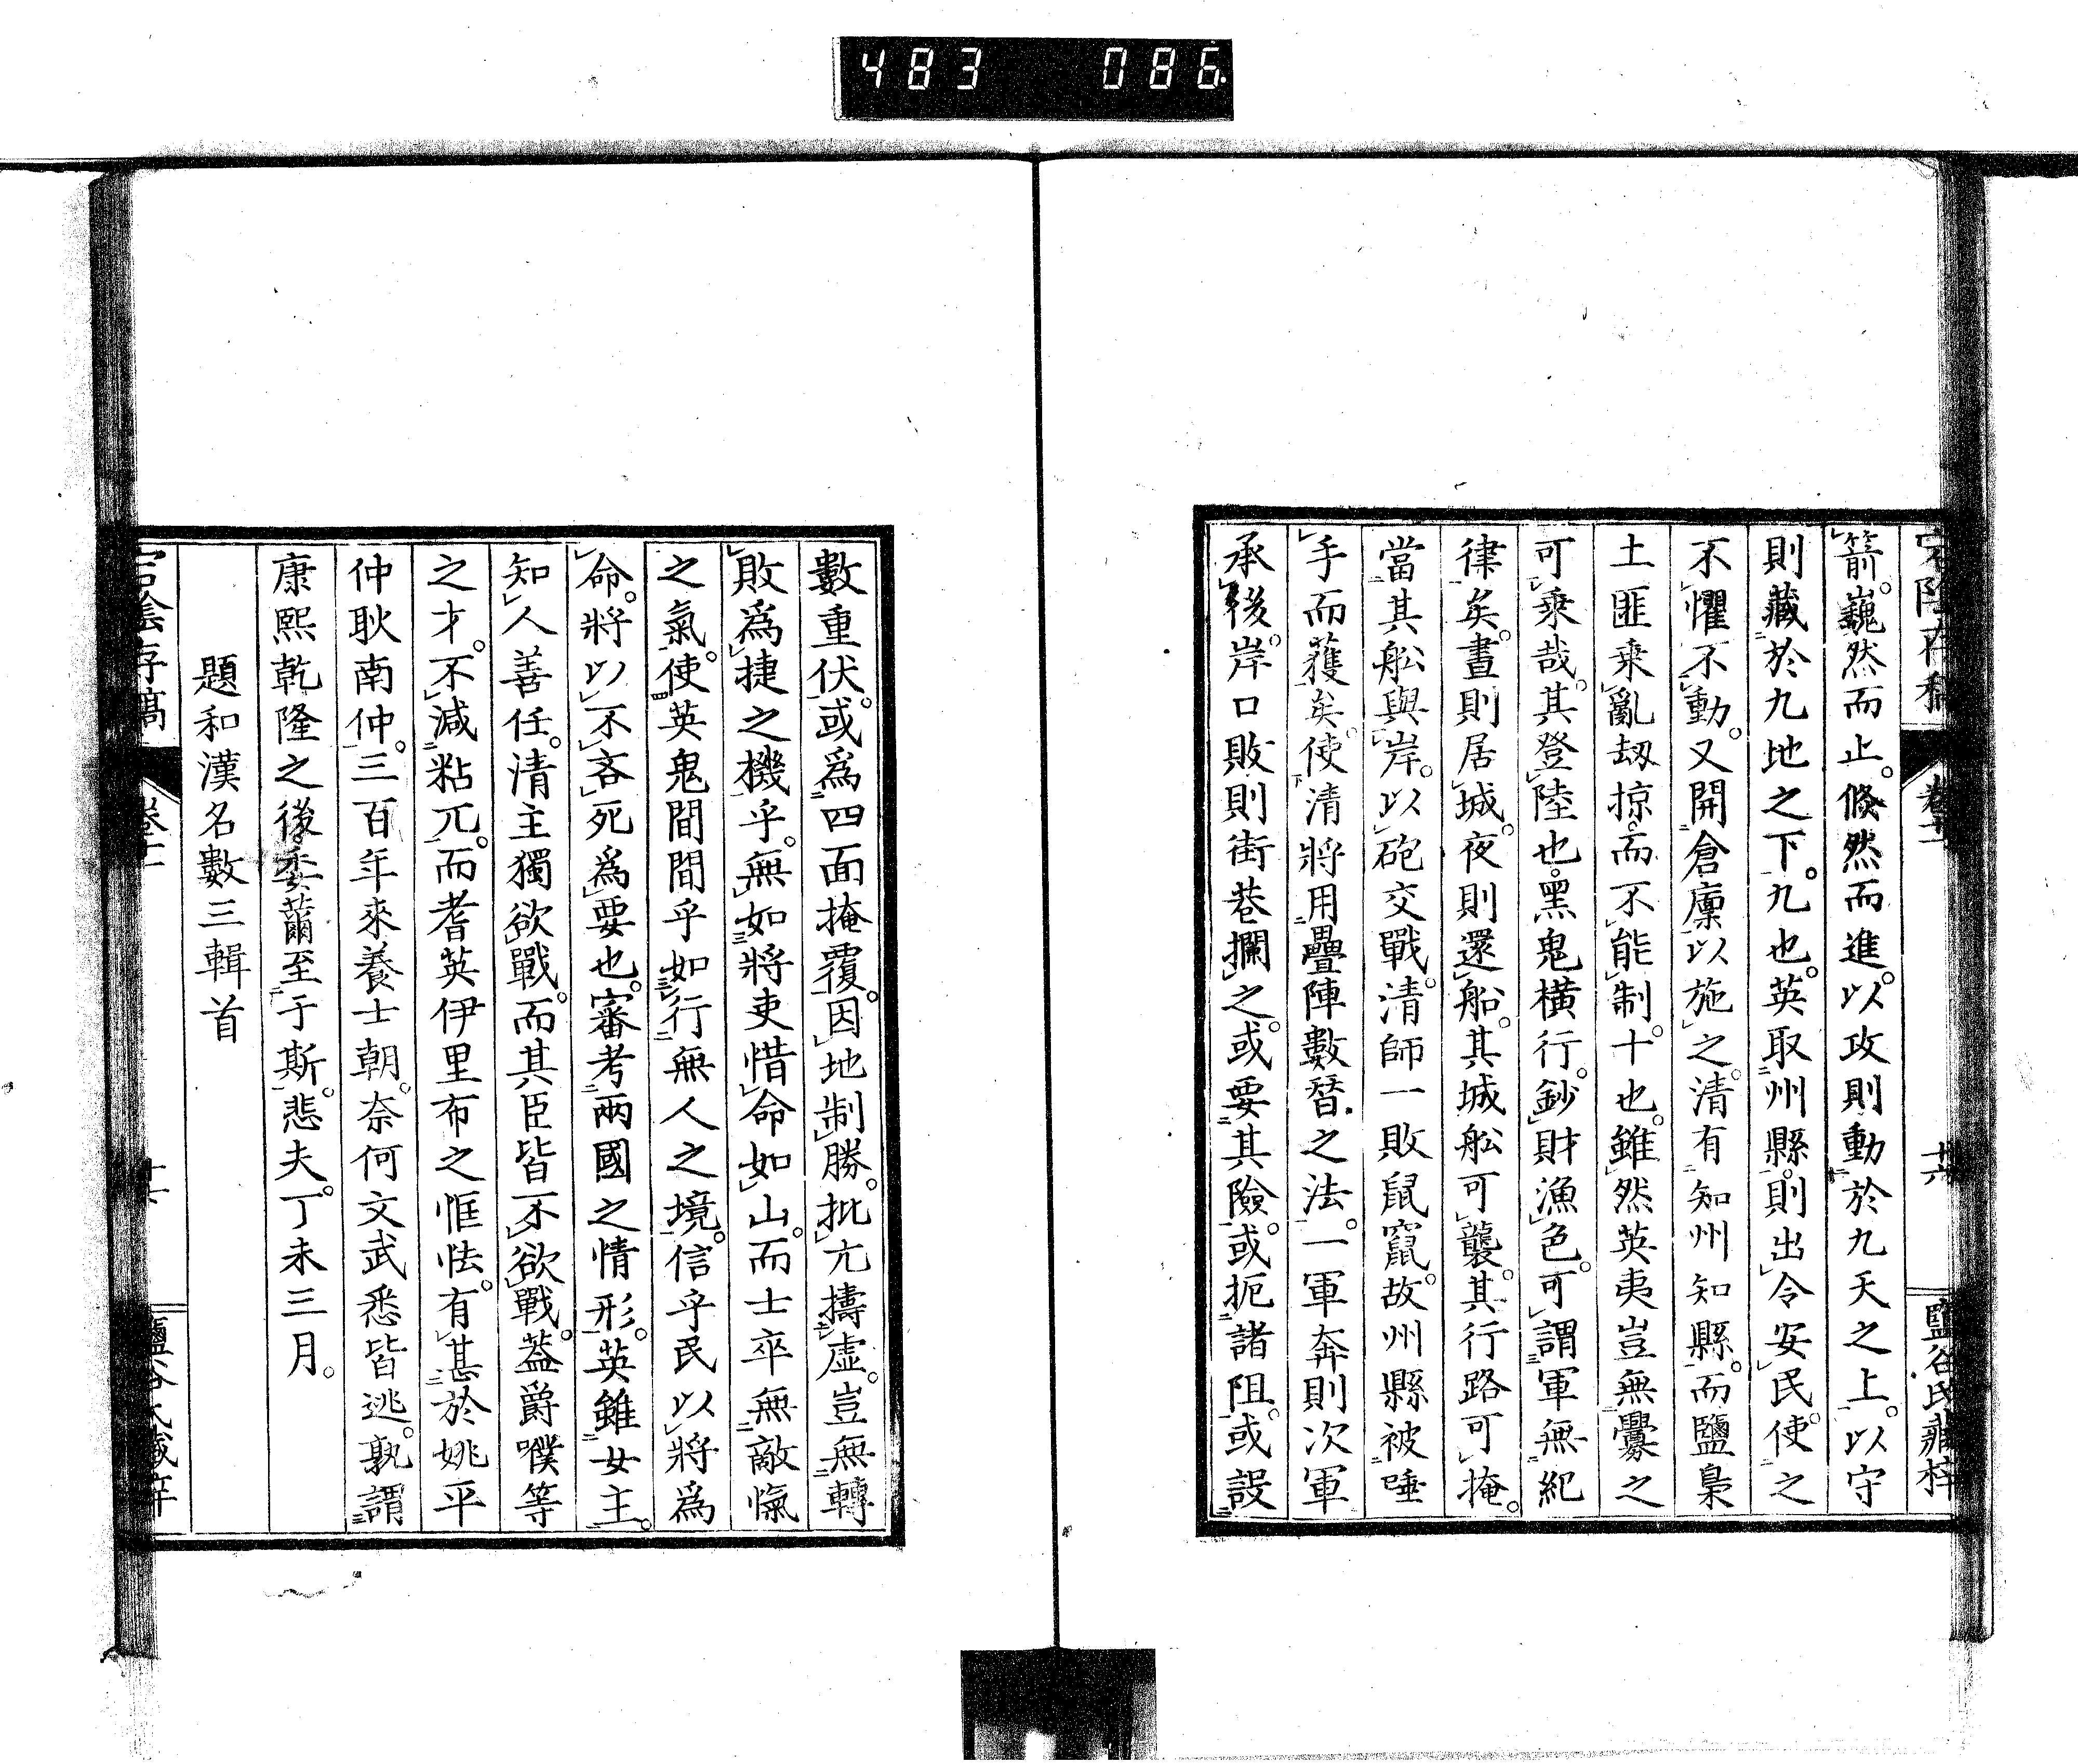 483 086
箭。巍然而止。倐然而進。以攻則動於九天之上。以守
則藏於九地之下。九也。英取州縣。則出令安民。使之
不懼不動。又開倉廩以施之。清有知州知縣。而鹽梟
土匪乘亂刼掠。而不能制。十也。雖然英夷豈無釁之
可乘哉。其登陸也。黑鬼橫行。鈔財漁色。可謂軍無紀
律矣。晝則居城。夜則還船。其城舩可襲。其行路可掩。
當其舩與岸。以砲交戰。清師一敗鼠竄。故州縣被唾
手而獲矣。使清將用疊陣數替之法。一軍奔則次軍
承後。岸口敗則街巷攔之。或要其險。或扼諸阻。或設
鹽谷氏藏梓
數重伏。或爲四面掩覆。因地制勝。批亢擣虛。豈無轉
敗爲捷之機乎。無如將吏惜命如山。而士卒無敵愾
之氣。使英鬼間間乎如行無人之境。信乎民以將爲
命。將以不吝死爲要也。審考兩國之情形。英雖女主。
知人善任。清主獨欲戰。而其臣皆不欲戰。葢爵噗等
之才。不減粘兀。而耆英伊里布之恇怯。有甚於姚平
仲耿南仲。三百年來養士朝。奈何文武悉皆逃。孰謂
康熙乾隆之後。委薾至于斯。悲夫。丁未三月。
題和漢名數三輯首
宕陰存稿 卷十一